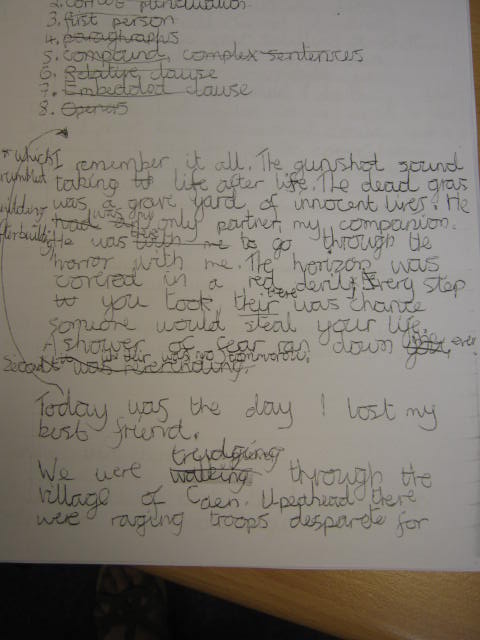 2. correct punctuation
3. first person
4. paragraphs
5. compound, complex sentences
6. Relative clause
7. Embedded clause
8. Openers
* which
rumbled
building
after building
I remember it all. The gunshot sound
taking life after life. The dead gras
was a grave yard of innocent lives. He
was my only partner, my companion.
He was there to go through the
horror with me. The horizon was
covered in a red devil. Every step
you took, there was chance
someone would steal your life.
A shower of fear ran down me every
Second
Today was the day I lost my
best friend.
We were trudging through the
village of Caen. Upeahead there
were raging troops desparete for